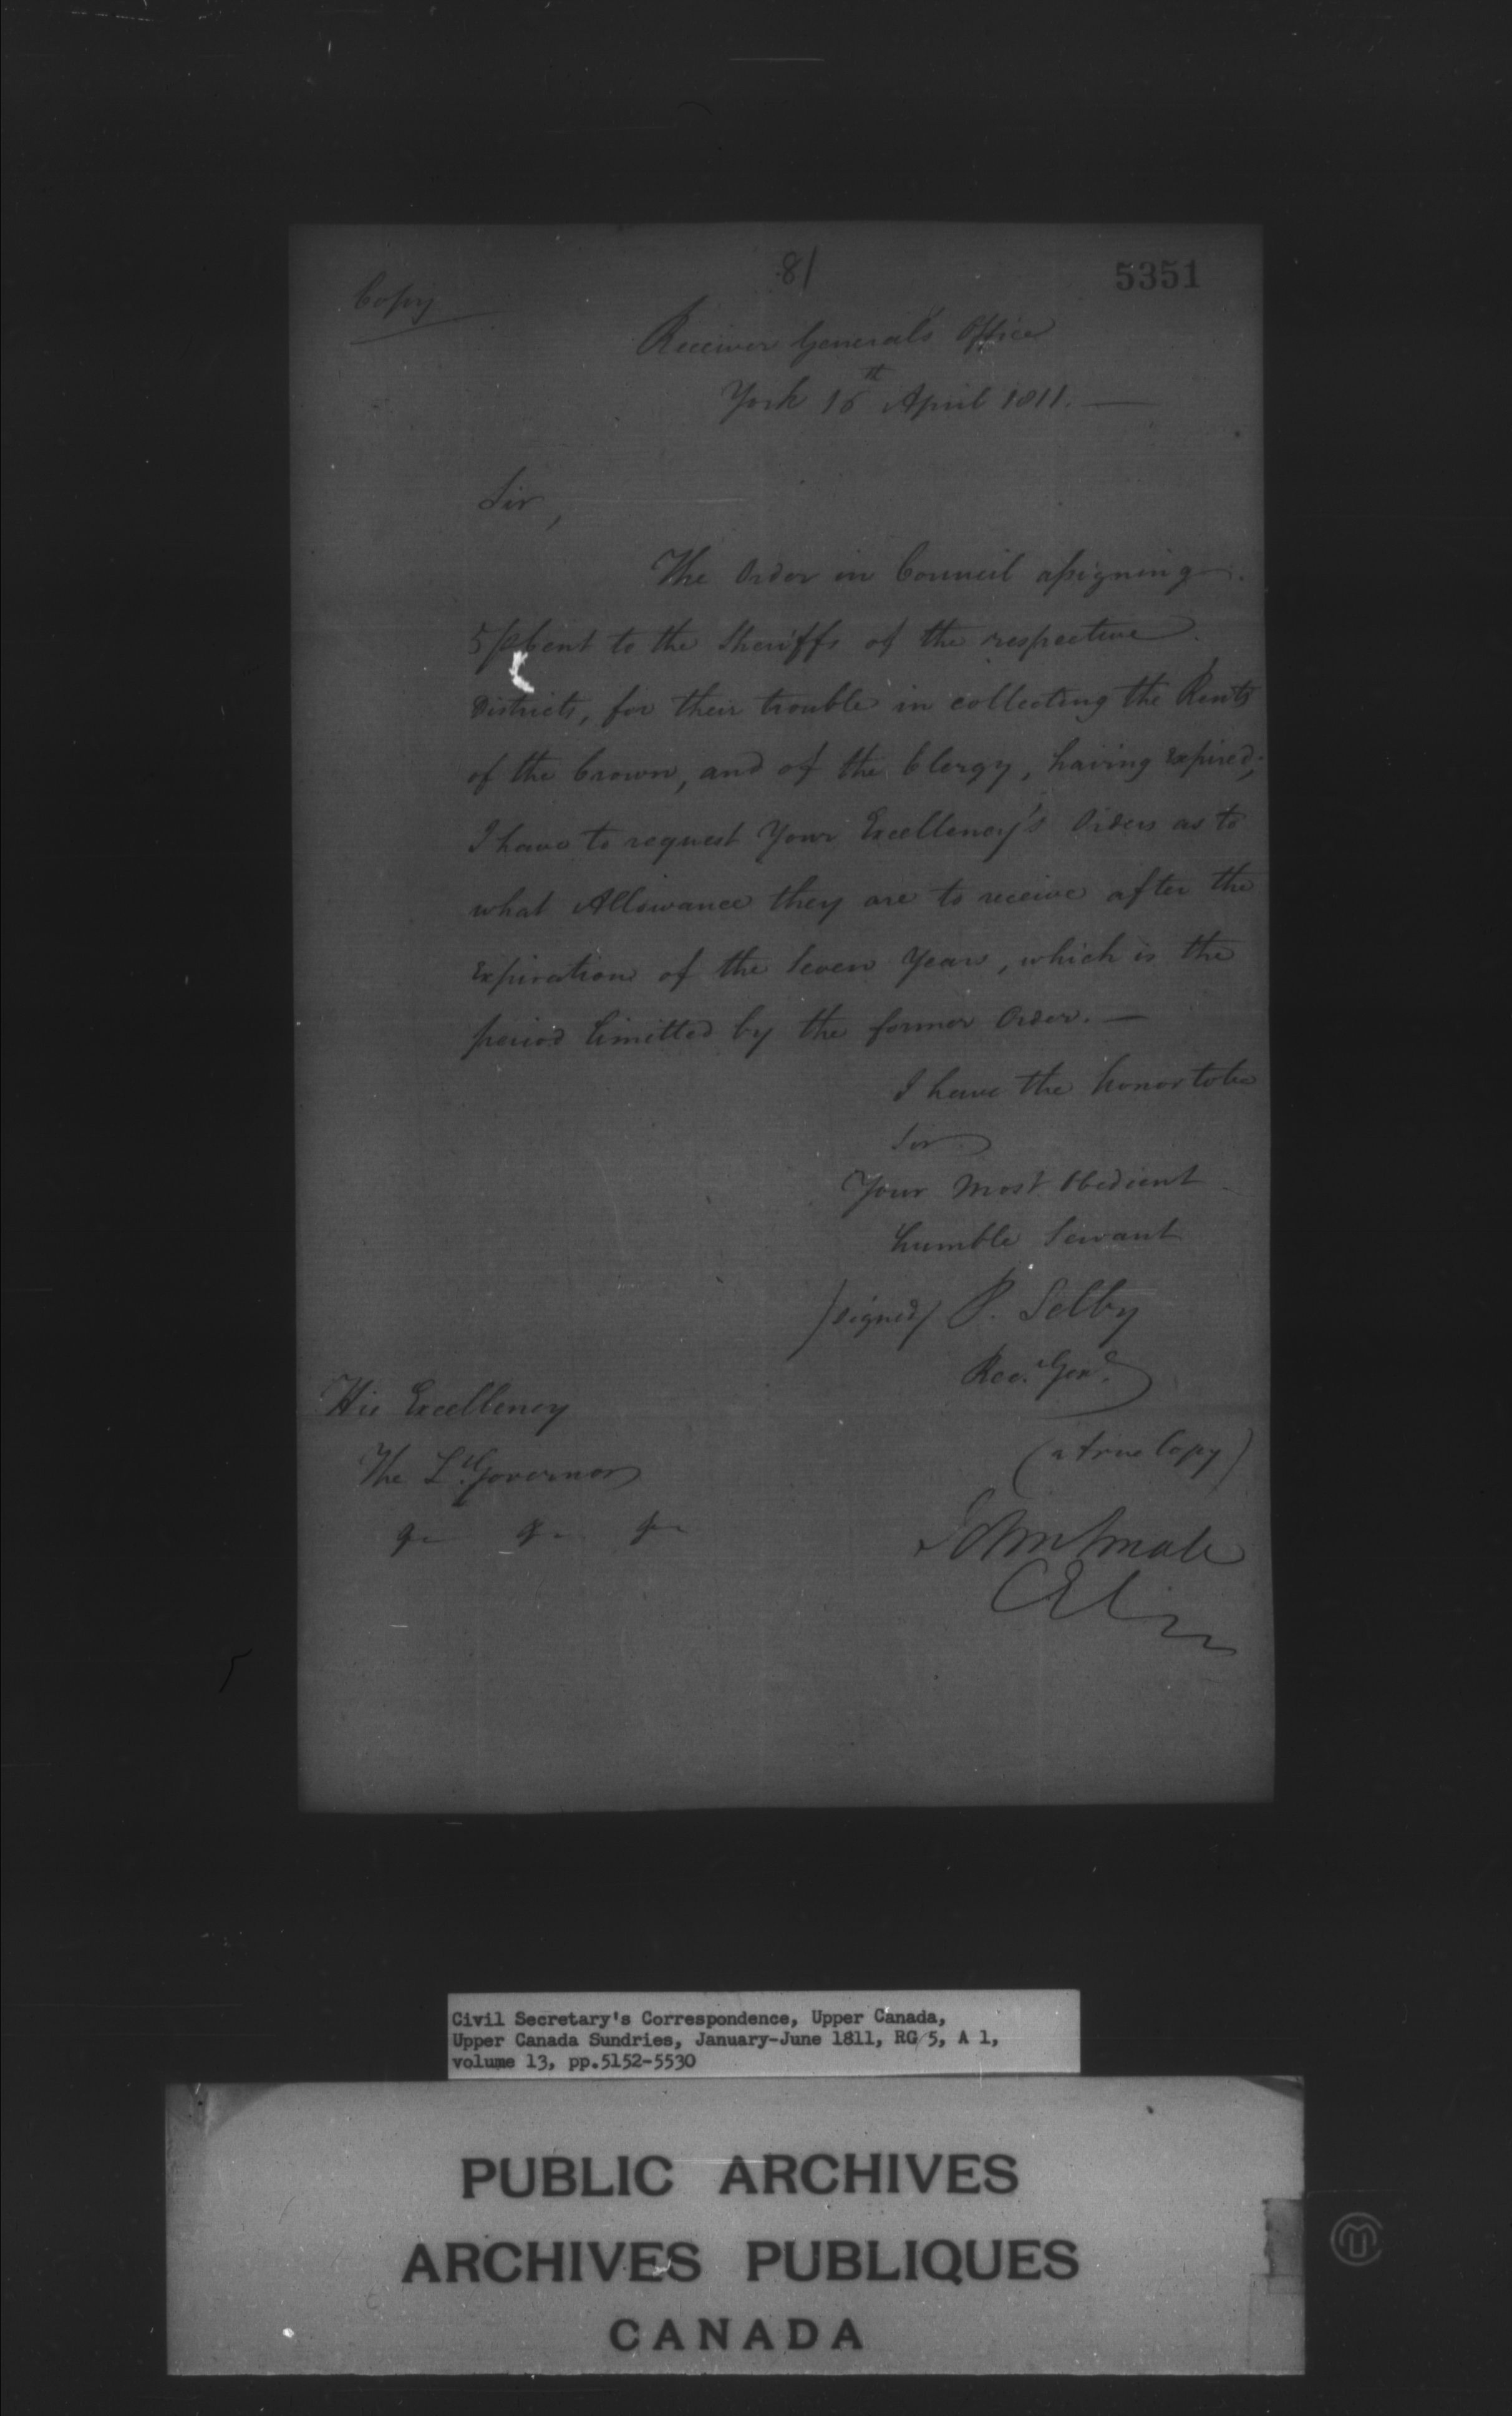 81
5351
Copy
Receiver General's Office
York 16th April 1811. —
Sir,
The Order in Council assigning
5 P Cent to the Sheriffs of the respective
Districts, for their trouble in collecting the Rents
of the Crown, and of the Clergy, having expired;
I have to request Your Excellency's Orders as to
what Allowance they are to receive after the
Expiration of the Seven Years, which is the
period limitted by the former Order. —
I have the honor to be
Sir
Your Most Obedient
humble Servant
/signed/ P. Selby
Rec. Genl.
His Excellency
The Lt. Governor
&c &c &c
(a true Copy)
John Small
CEC
Civil Secretary's Correspondence, Upper Canada,
Upper Canada Sundries, January-June 1811, RG 5, A 1,
volume 13, pp.5152-5530
PUBLIC ARCHIVES
ARCHIVES PUBLIQUES
CANADA